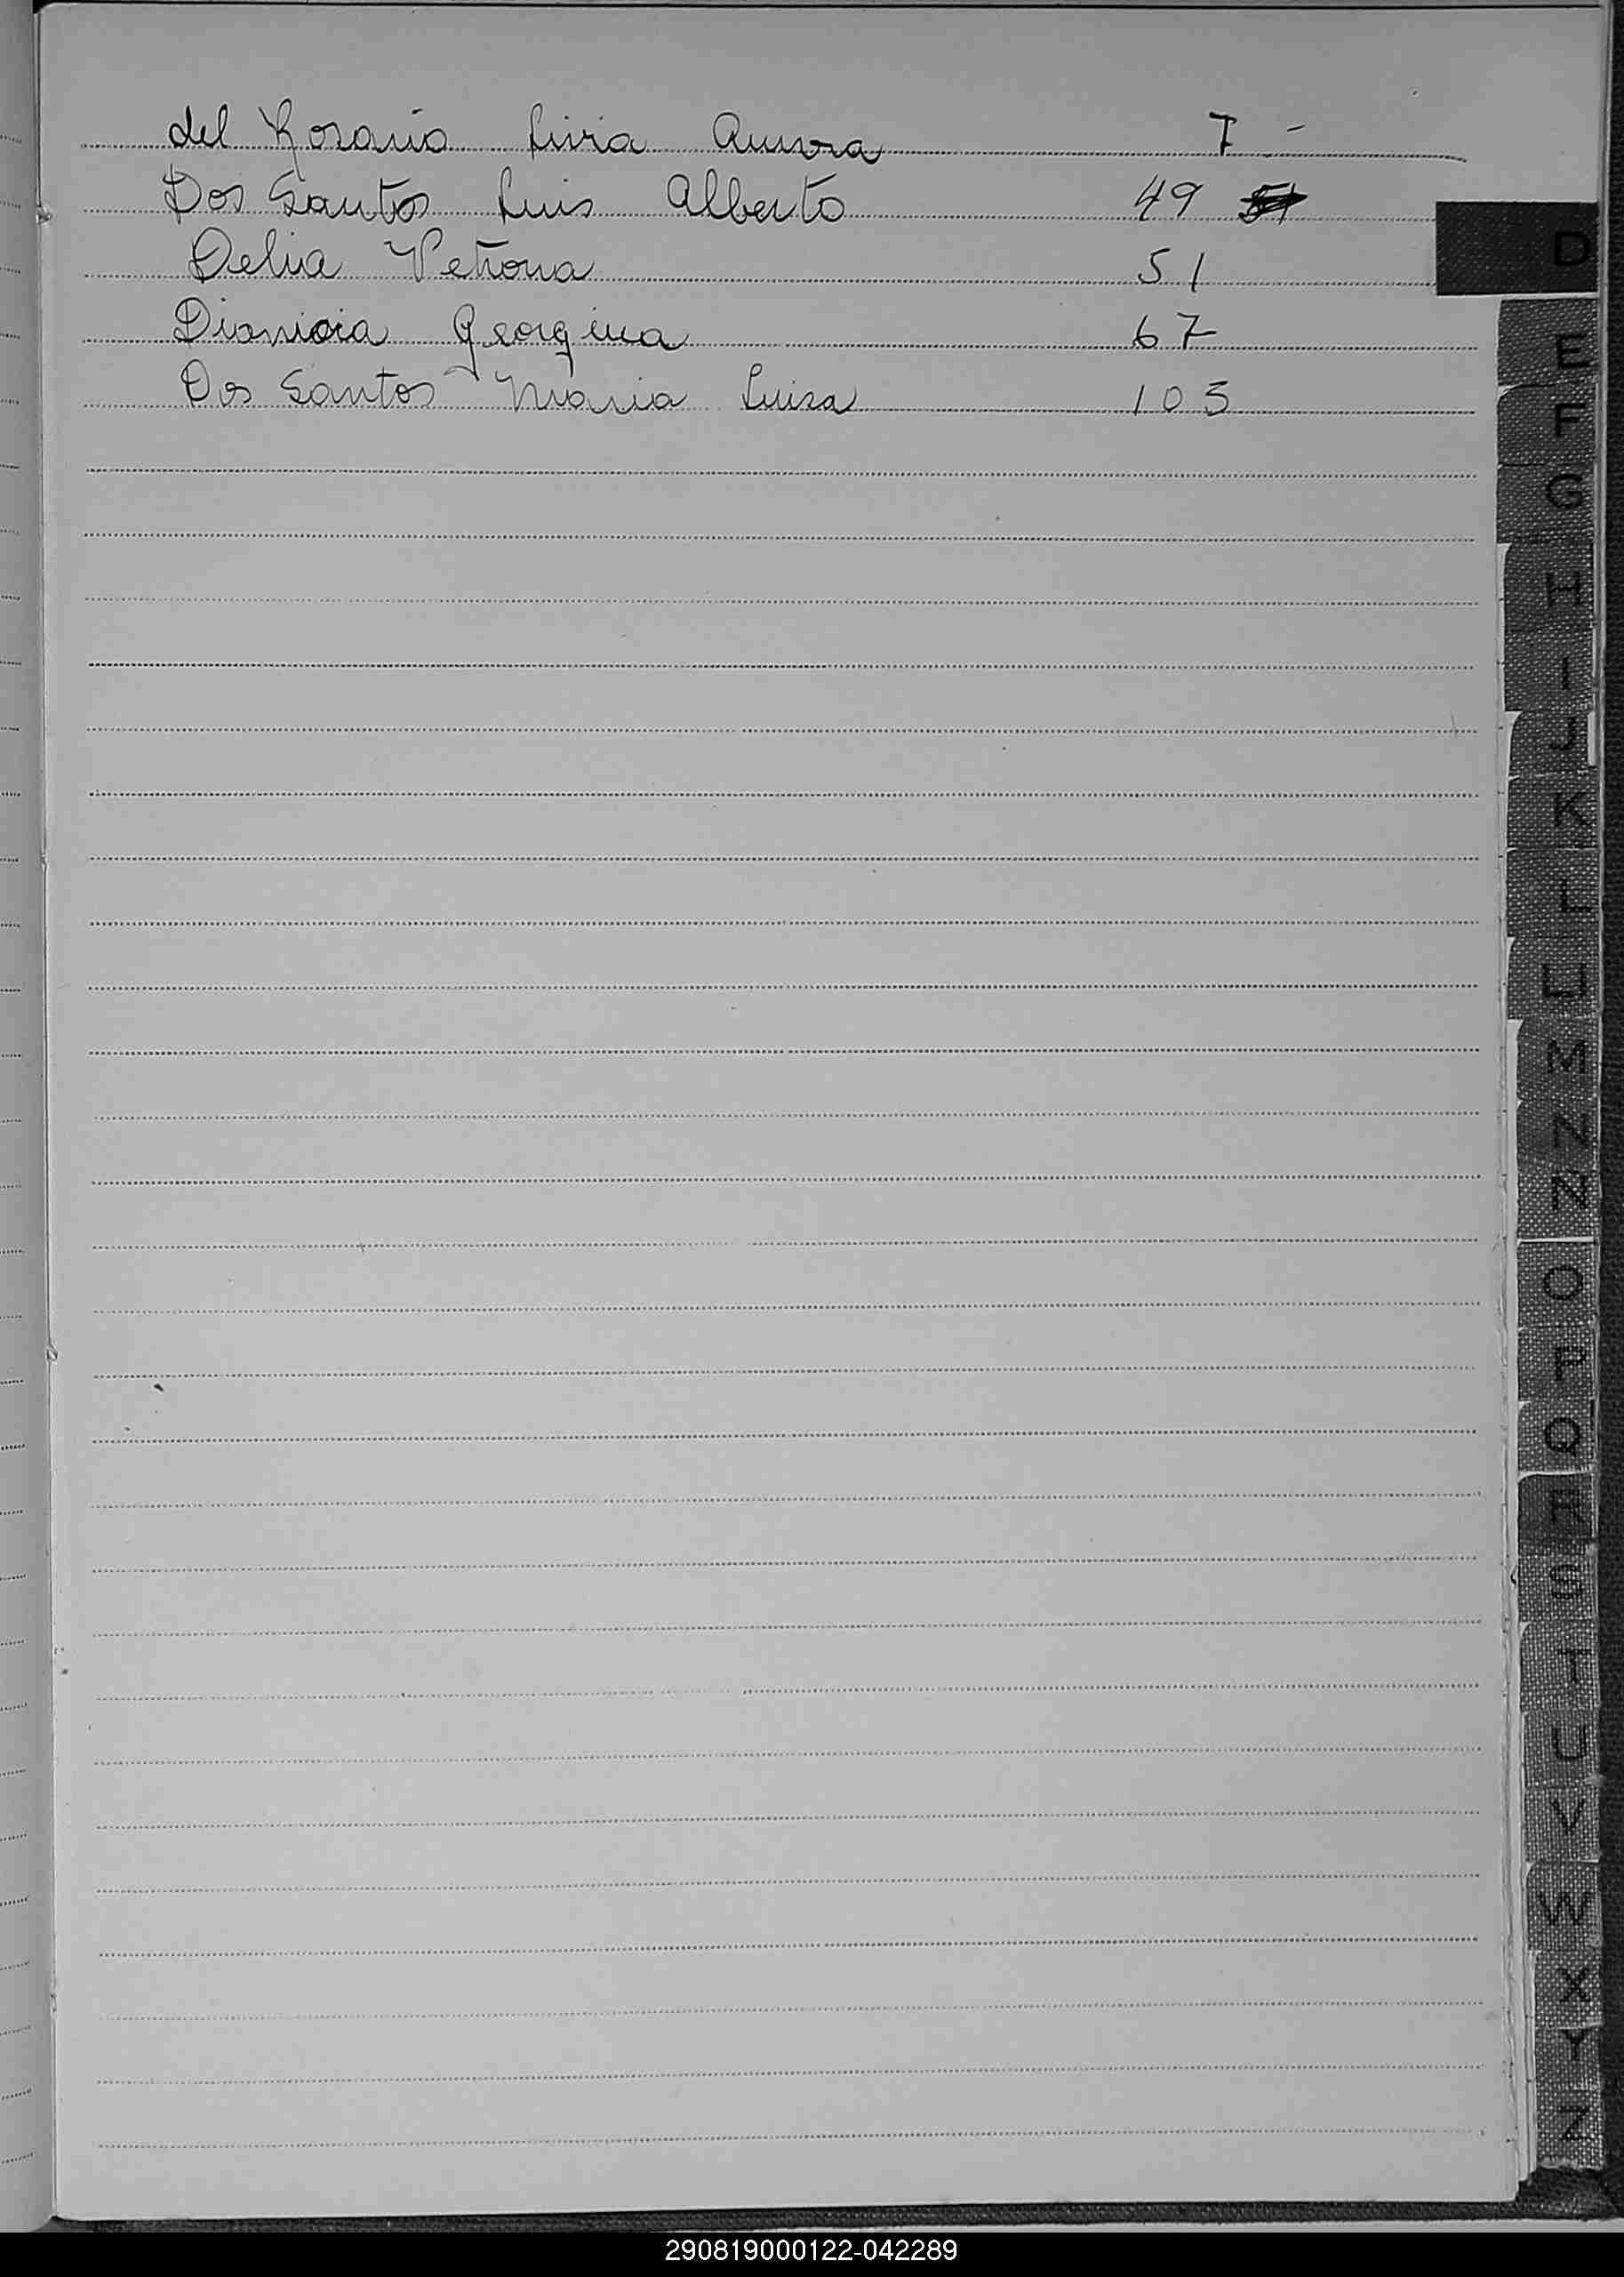 del Rosario Livia Aurora 7 -
Dos Santos Luis Alberto 49
Delia Petrona 51
Dionicia Georgina 67
Dos Santos Maria Luisa 103
D
E
F
G
H
I
J
K
L
LL
M
N
Ñ
O
P
Q
R
S
T
U
V
W
X
Y
Z
290819000122-042289